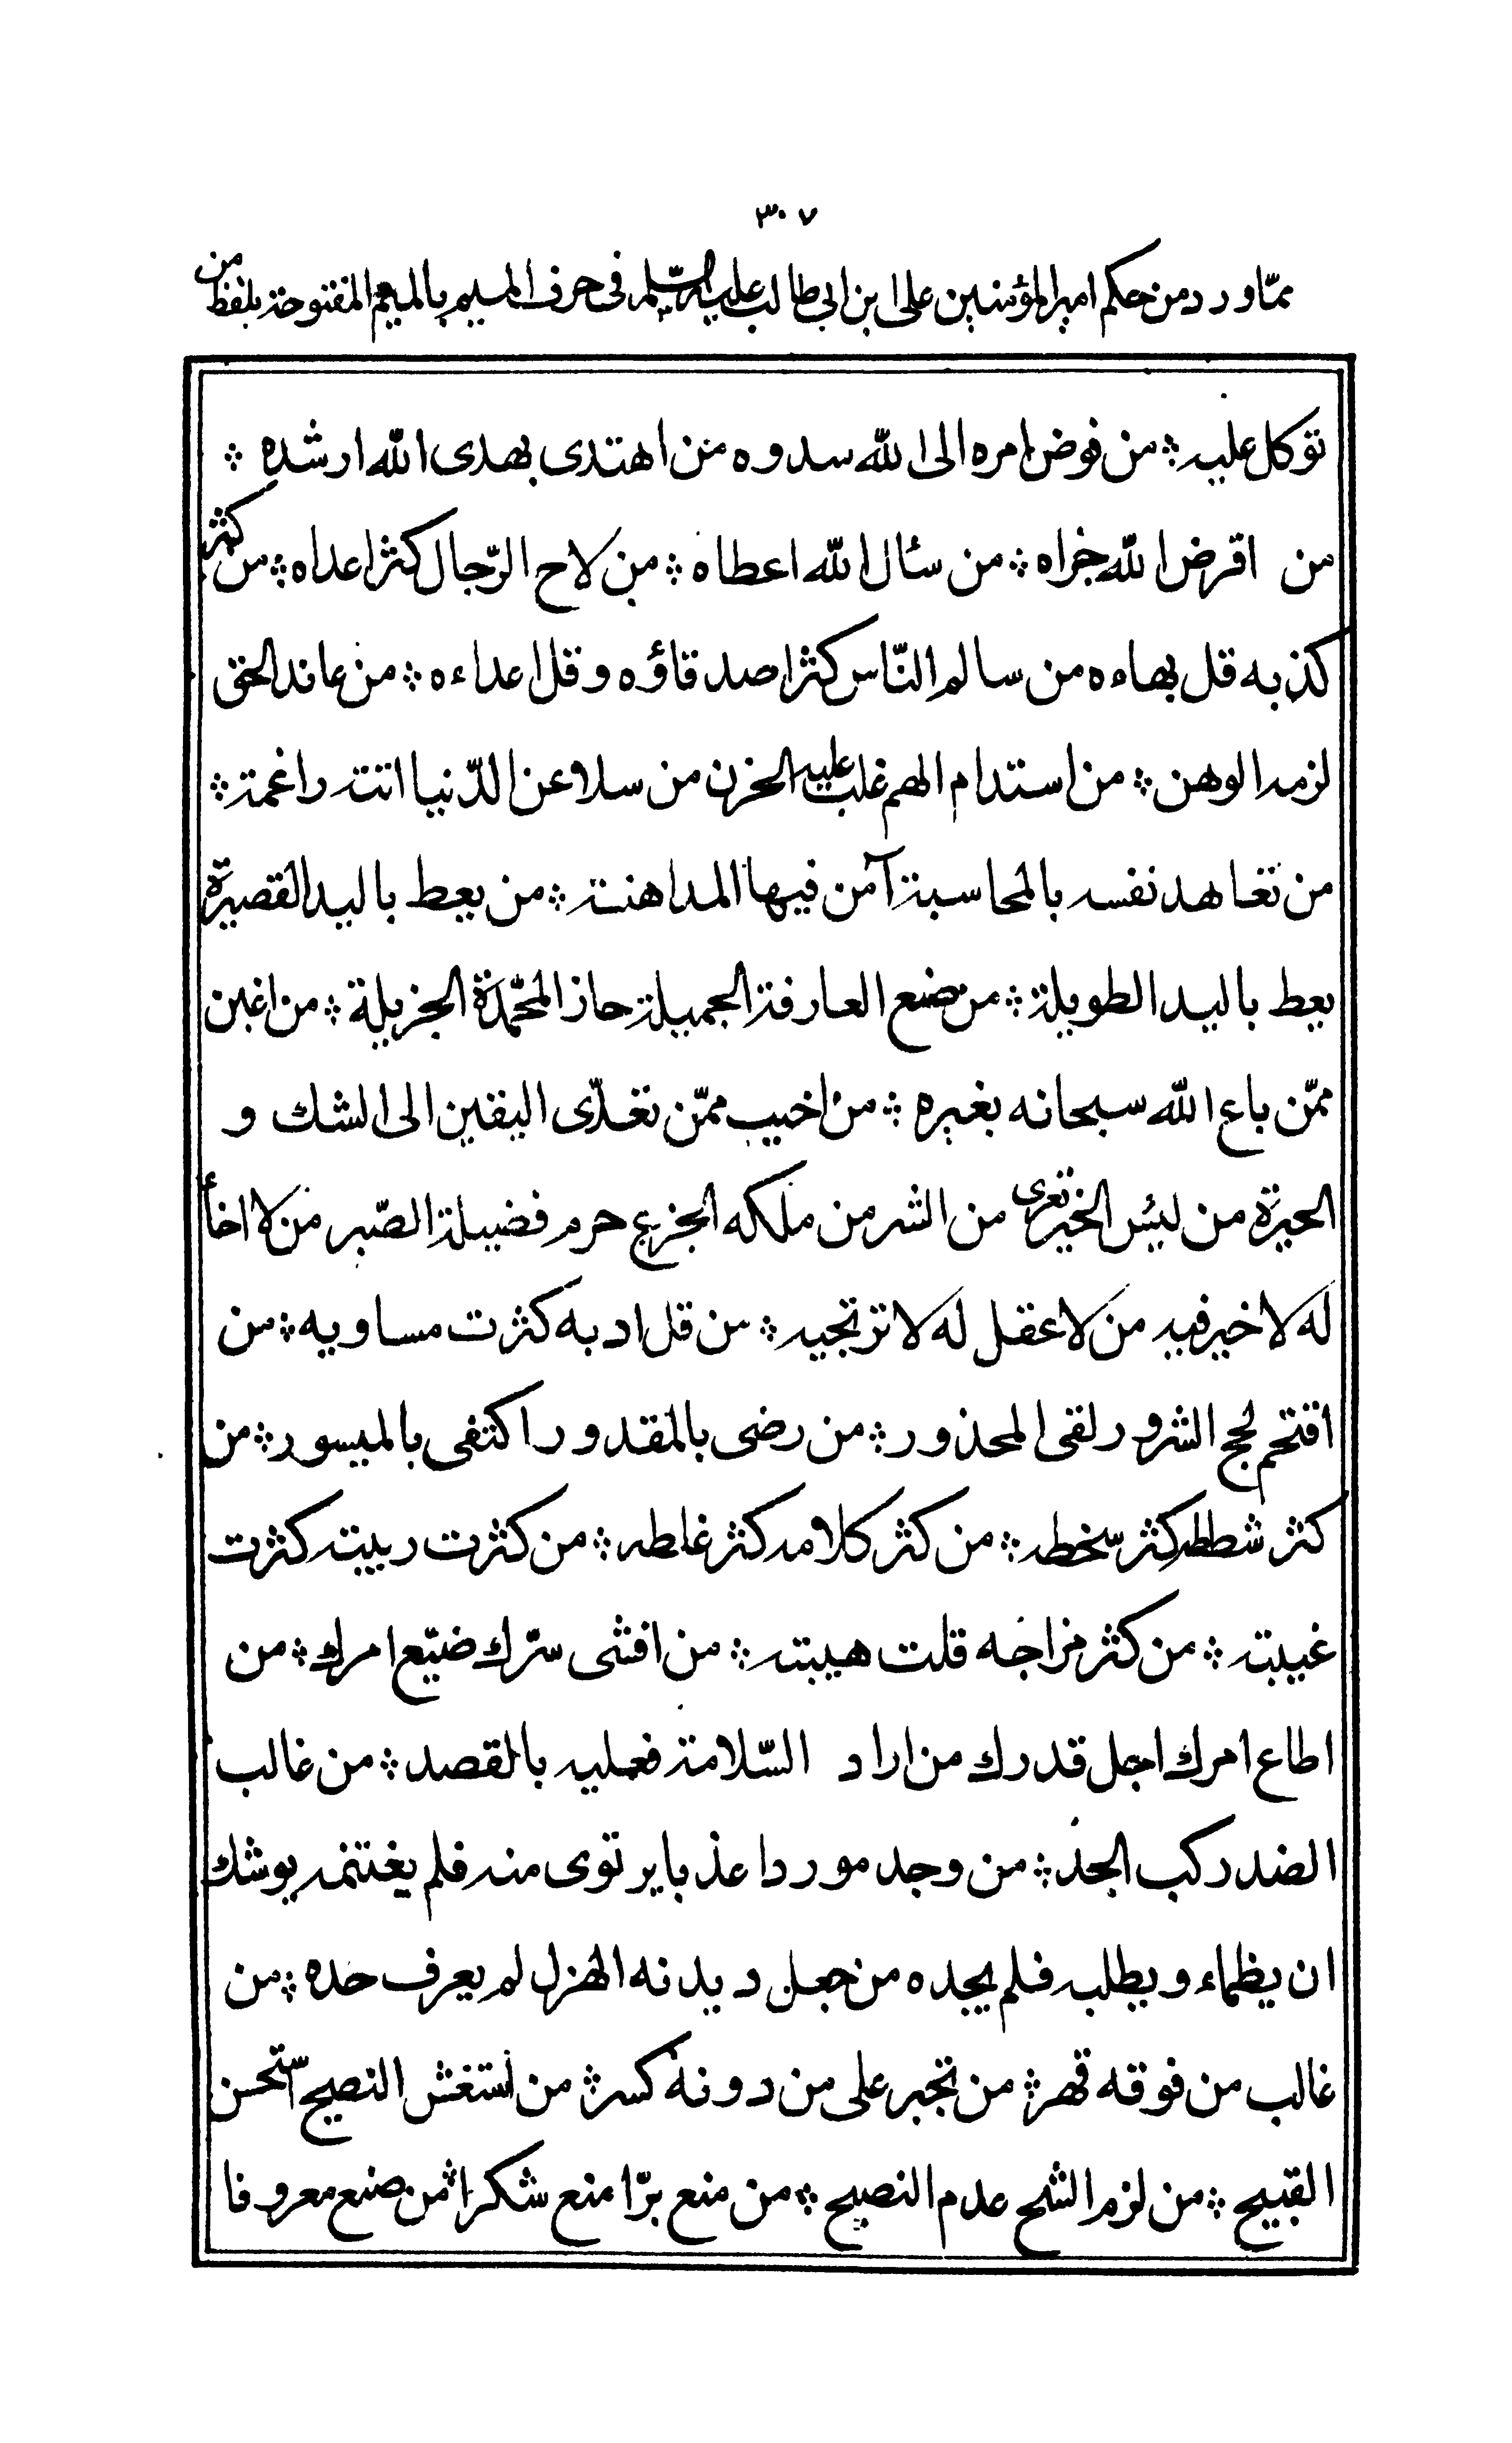 ٣٠٧
ممّا ورد من حكم امير المؤمنين على ابن ابي طالب عليه السّلم في حرف الميم بالميم المفتوحة بلفظ من
توكل عليه ❖ من فوض امره الى الله سدوه من اهتدى بهدى الله ارشده ❖
من اقرض الله جزاه ❖ من سئال الله اعطاه ❖ من لاح الرّجال كثر اعداه ❖ من كثر
كذبه قل بهاءه من سالم النّاس كثر اصدقاؤه وقل اعداءه ❖ من عاند الحق
لزمه الوهن ❖ من استدام الهم غلب عليه الحزن من سلا عن الدّنيا اتته راغمة ❖
من تعاهد نفسه بالمحاسبة آمن فيها المداهنة ❖ من يعط باليد القصيرة
يعط باليد الطويلة ❖ من صنع العارفة الجميلة حاز المحمّدة الجزيلة ❖ من اغبن
ممّن باع الله سبحانه بغيره ❖ من اخيب ممّن تعدّى اليقين الى الشك و
الحيرة من لبس الخير تعرى من الشر من ملكه الجزع حرم فضيلة الصّبر من لا اخأ
له لا خير فيه من لا عقل له لا ترتجيه ❖ من قل ادبه كثرت مساويه ❖ من
اقتحم لجج الشرور لقى المحذور ❖ من رضى بالمقدور اكتفى بالميسور ❖ من
كثر شططه كثر سخطه ❖ من كثر كلامه كثر غلطه ❖ من كثرت ريبته كثرت
غيبته ❖ من كثر مزاحه قلت هيبته ❖ من افشى سرّك ضيّع امرك ❖ من
اطاع امرك اجل قدرك من اراد السّلامة فعليه بالقصد ❖ من غالب
الضد ركب الجد ❖ من وجد موردا عذبا يرتوى منه فلم يغتنمه يوشك
ان يظماء ويطلبه فلم يجده من جعل ديدنه الهزل لم يعرف حده ❖ من
غالب من فوقه قهر ❖ من تجبر على من دونه كسر ❖ من استغش النصيح استحسن
القبيح ❖ من لزم الشح عدم النصيح ❖ من منع برّا منع شكرا ❖ من صنع معروفا